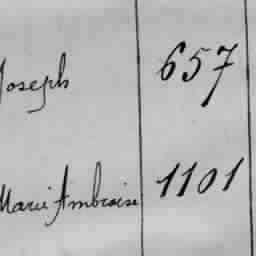 Joseph 657
Marie Ambroise 1101